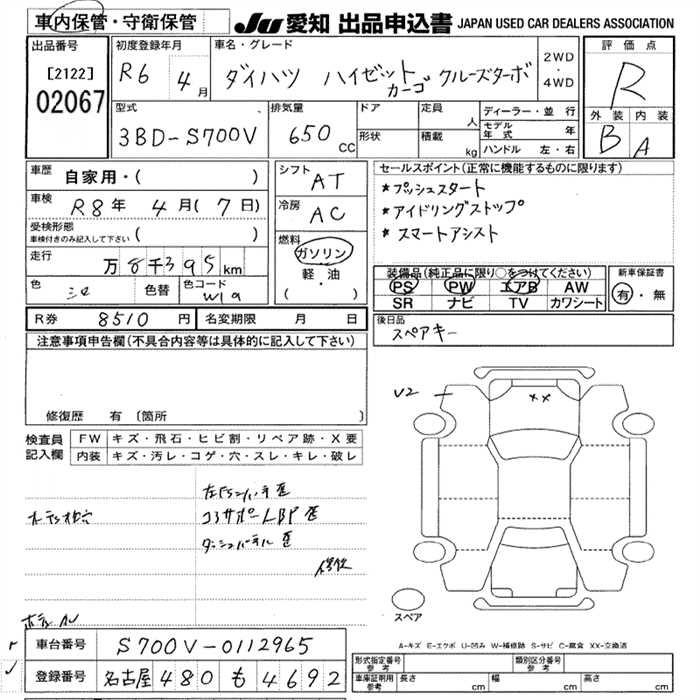 車内保管・守衛保管
JU 愛知 出品申込書 JAPAN USED CAR DEALERS ASSOCIATION
出品番号
[2122]
02067
初度登録年月
R6 4月
車名・グレード
ダイハツ ハイゼットカーゴ クルーズターボ
2WD
・
4WD
評価点
R
外装 内装
B A
型式
3BD-S700V
排気量
650 CC
ドア
形状
定員 人
積載 kg
ディーラー・並行
モデル年式 年
ハンドル 左・右
車歴
自家用・( )
車検
R8年 4月(7日)
受検形態
車検付きのみ記入して下さい ( )
走行
万8千395km
色
シロ
色替
色コード
W19
シフト
AT
冷房
AC
燃料
ガソリン
軽・油
( )
セールスポイント(正常に機能するものに限ります)
*プッシュスタート
*アイドリングストップ
*スマートアシスト
装備品(純正品に限り○をつけてください)
PS PW エアB AW
SR ナビ TV カワシート
新車保証書
有・無
R券 8510円
名変期限 月 日
後日品
スペアキー
注意事項申告欄(不具合内容等は具体的に記入して下さい)
修復歴 有 〔箇所 〕
検査員記入欄
FW キズ・飛石・ヒビ割・リペア跡・X要
内装 キズ・汚レ・コゲ・穴・スレ・キレ・破レ
コアサポートLBP歪
ダッシュパネル歪
V2
XX
スペア
A-キズ E-エクボ U-凹み W-補修跡 S-サビ C-腐食 XX-交換済
車台番号 S700V-0112965
登録番号 名古屋480も4692
形式指定番号
参考
類別区分番号
参考
車庫証明用
参考
長さ cm
幅 cm
高さ cm